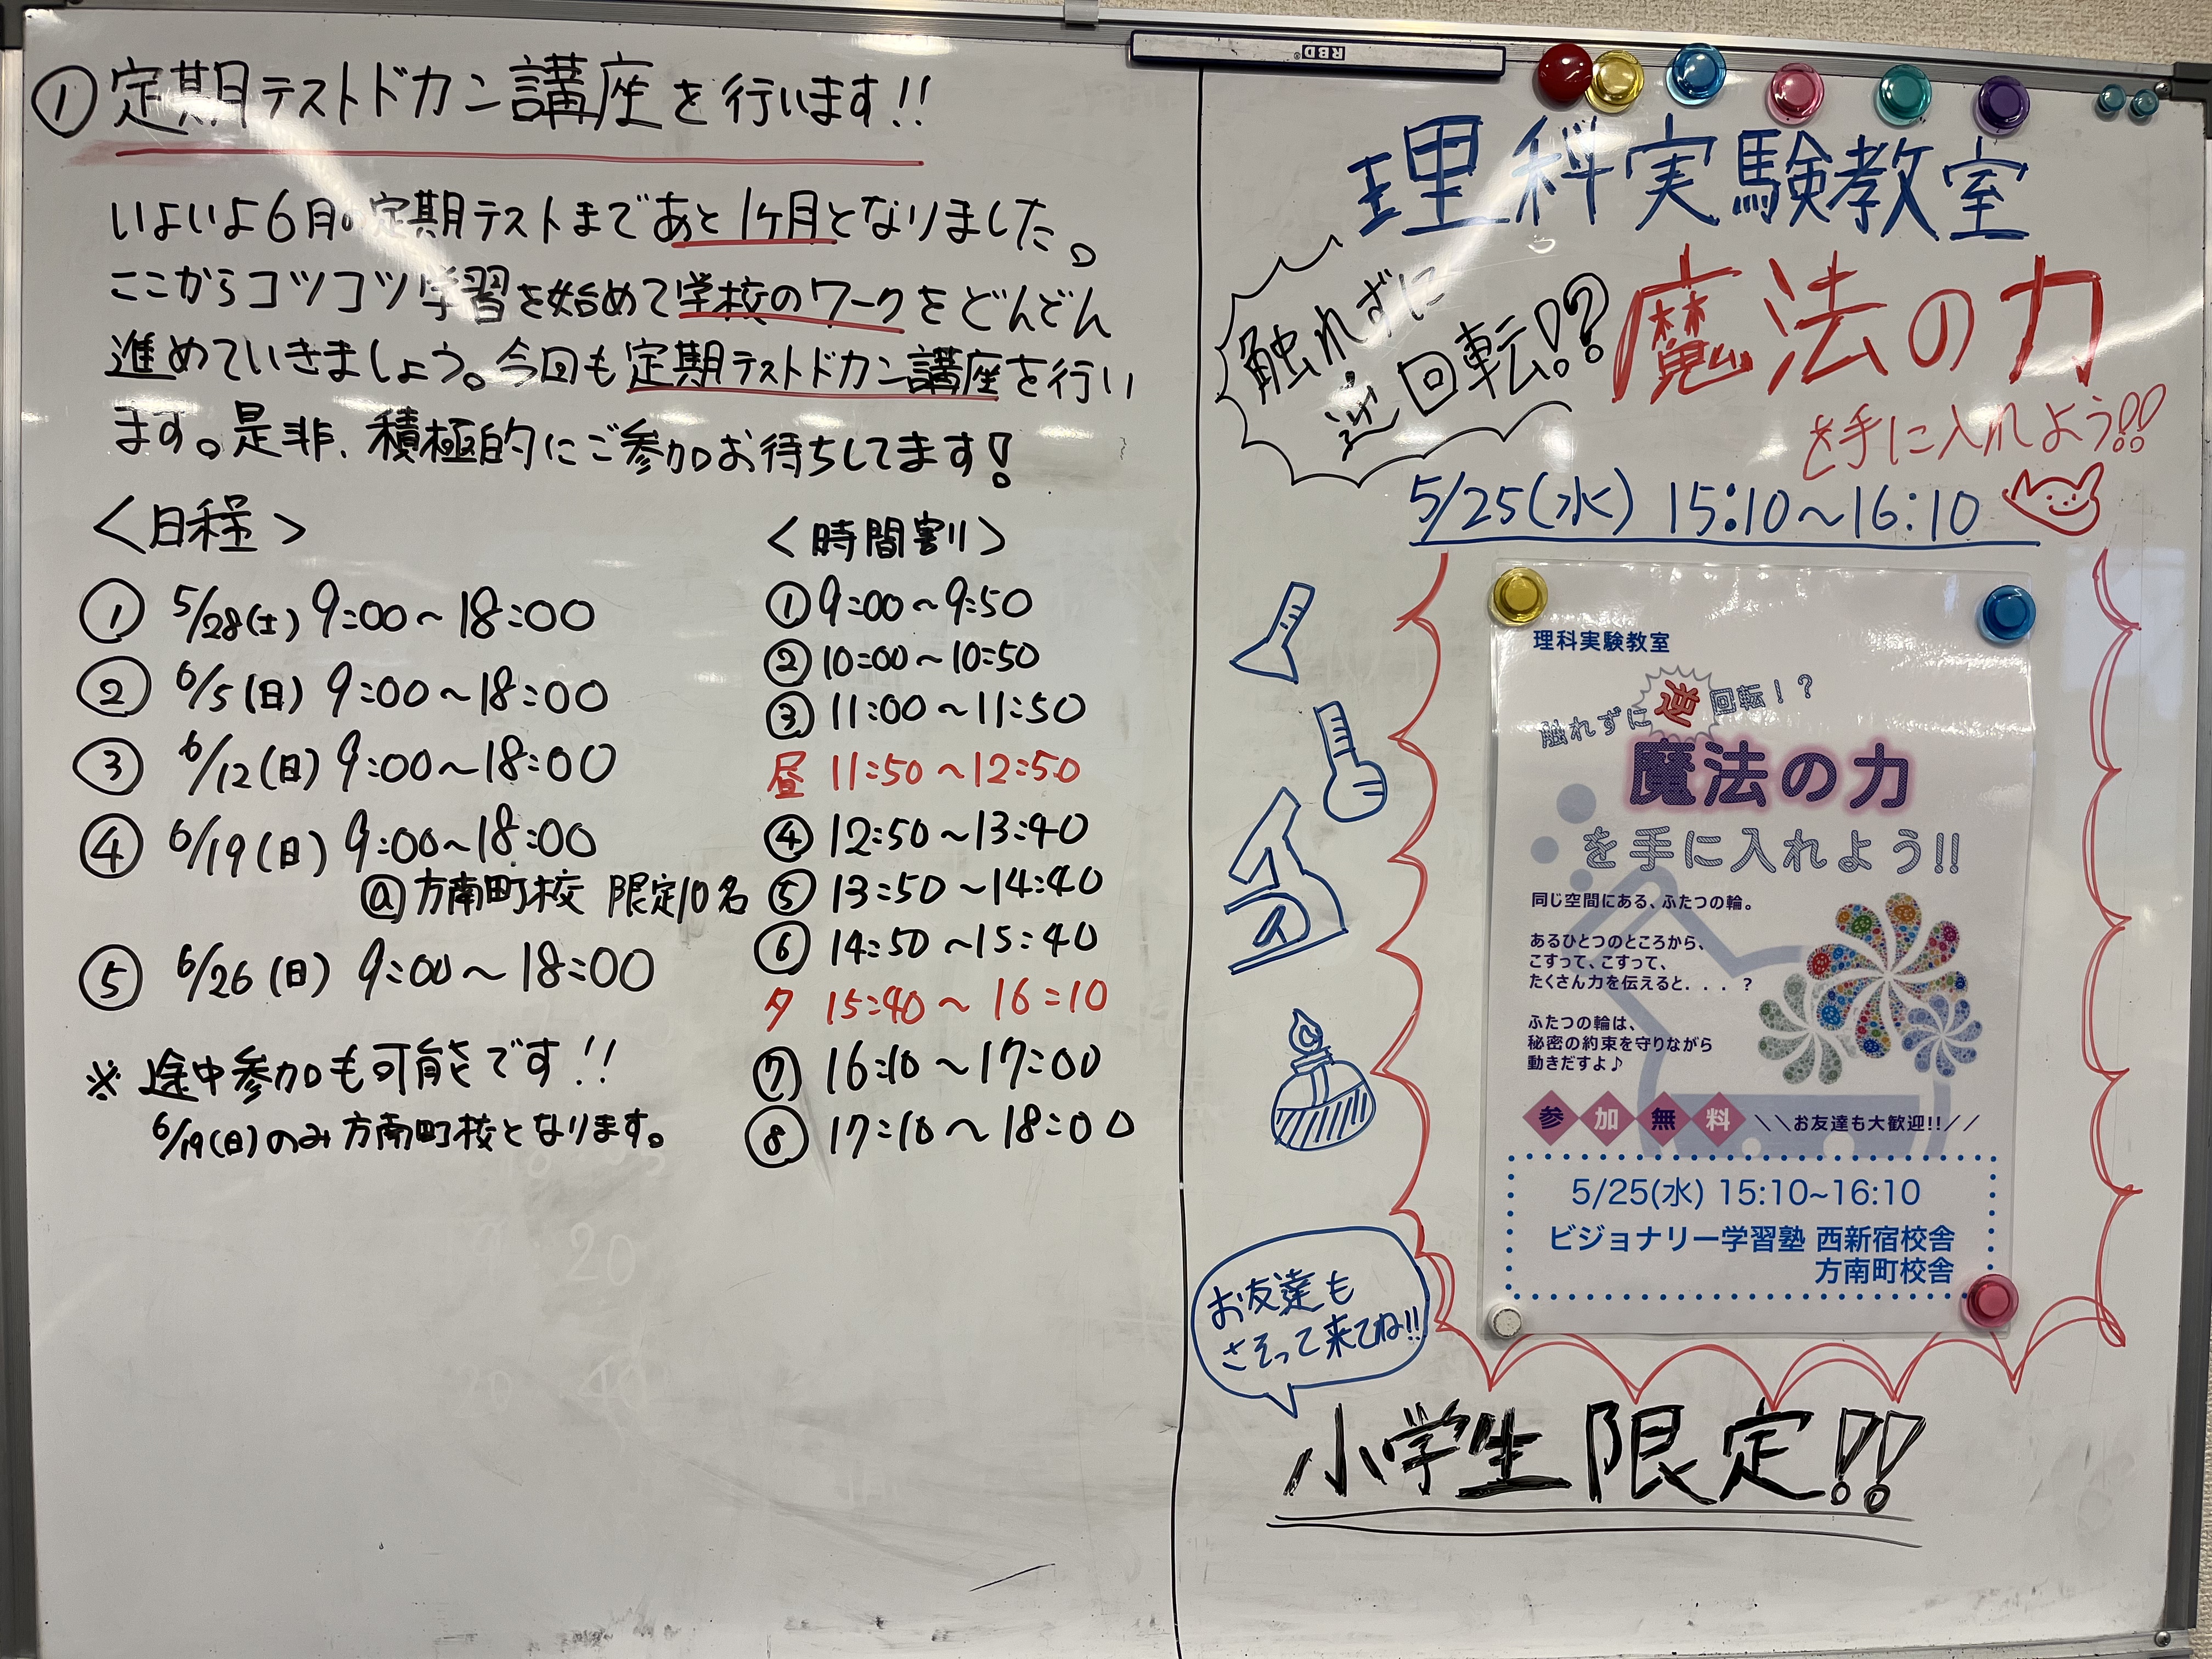 ①定期テストドカン講座を行います!!
いよいよ6月の定期テストまであと1ヶ月となりました。
ここからコツコツ学習を始めて学校のワークをどんどん
進めていきましょう。今回も定期テストドカン講座を行い
ます。是非、積極的にご参加お待ちしてます!
<日程>
① 5/28(土) 9:00~18:00
② 6/5(日) 9:00~18:00
③ 6/12(日) 9:00~18:00
④ 6/19(日) 9:00~18:00
@方南町校 限定10名
⑤ 6/26(日) 9:00~18:00
※ 途中参加も可能です!!
6/19(日)のみ方南町校となります。
<時間割>
① 9:00~9:50
② 10:00~10:50
③ 11:00~11:50
昼 11:50~12:50
④ 12:50~13:40
⑤ 13:50~14:40
⑥ 14:50~15:40
夕 15:40~16:10
⑦ 16:10~17:00
⑧ 17:10~18:00
RBD
理科実験教室
触れずに
逆回転!?
魔法の力
を手に入れよう!!
5/25(水) 15:10~16:10
理科実験教室
触れずに逆回転!?
魔法の力
を手に入れよう!!
同じ空間にある、ふたつの輪。
あるひとつのところから、
こすって、こすって、
たくさん力を伝えると...?
ふたつの輪は、
秘密の約束を守りながら
動きだすよ♪
参加無料 \\お友達も大歓迎!!//
5/25(水) 15:10~16:10
ビジョナリー学習塾 西新宿校舎
方南町校舎
お友達も
さそって来てね!!
小学生限定!!